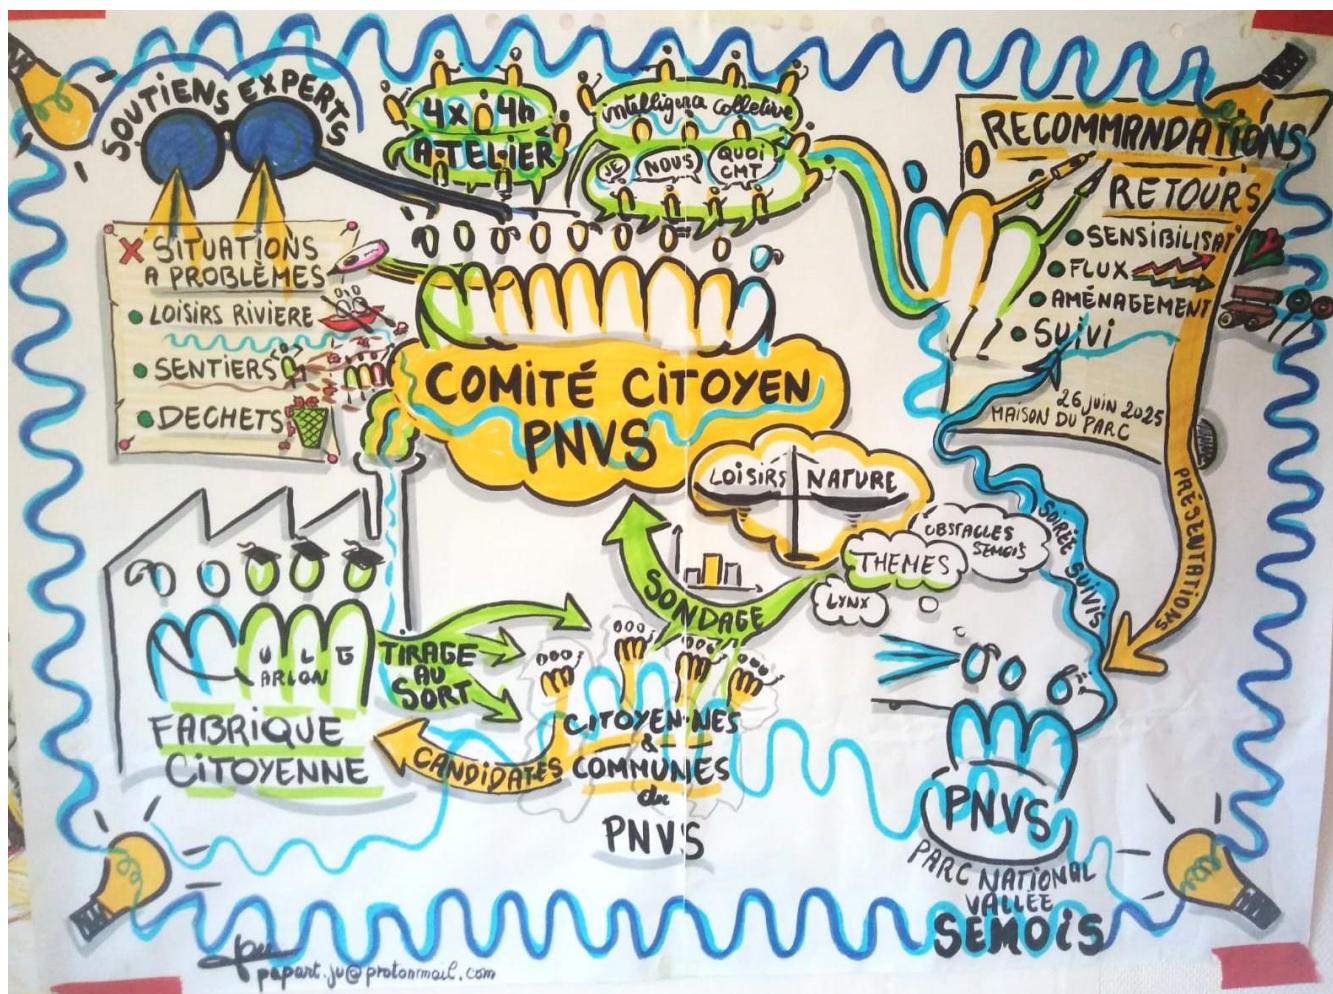 SOUTIENS EXPERTS
4x 4h
ATELIER
intelligence collective
JE
NOUS
QUOI
CMT
RECOMMANDATIONS
RETOURS
SENSIBILISAT°
FLUX
AMÉNAGEMENT
SUIVI
26 juin 2025
MAISON DU PARC
X SITUATIONS
A PROBLÈMES
LOISIRS RIVIERE
SENTIERS
DECHETS
COMITÉ CITOYEN
PNVS
LOISIRS NATURE
OBSTACLES
SEMOIS
THEMES
LYNX
SONDAGE
SOIRÉE SUIVIS
PRÉSENTATIONS
U L G
ARLON
TIRAGE
AU
SORT
FABRIQUE
CITOYENNE
CANDIDATES
CITOYEN·NES
&
COMMUNES
du
PNVS
PNVS
PARC NATIONAL
VALLÉE
SEMOIS
papart.ju@protonmail.com